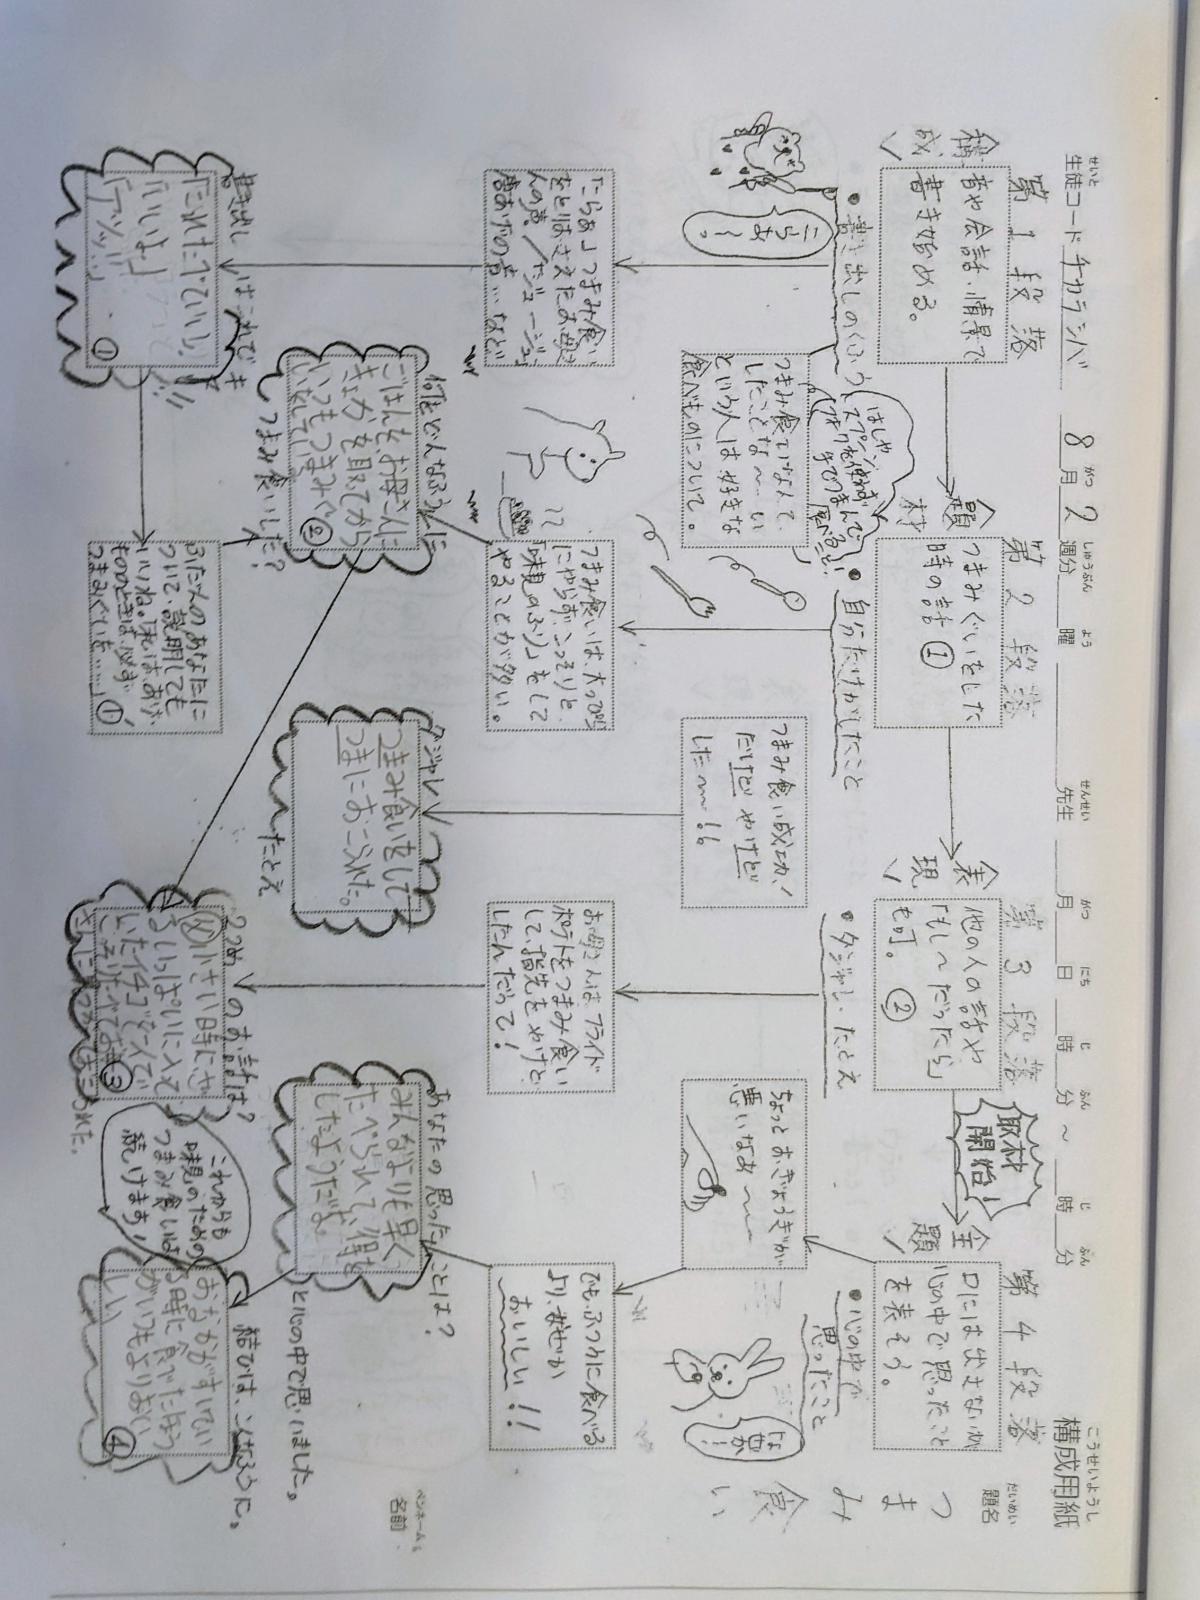 構成用紙
こうせいようし
せいと
生徒コード チカラシバ 8月2週分 曜 先生 月 日 時 分 ～ 時 分
がつ しゅうぶん よう せんせい がつ にち じ ふん じ ふん
だいめい
題名
つまみ食い
ペンネーム
名前
第1段落
構成
音や会話、情景で
書き始める。
・書き出しのくふう
こらぁ～。
つまみ食いなんて、
したことな～い
という人は好きな
食べものについて。
「こらぁ」つまみ食い
書き出し
「たれたべていい？」
「いいよ」
①
第2段落
題材
つまみぐいをした
時の話 ①
・自分だけがしたこと
つまみ食い成功！
だけど やけど
した～！
つまみ食いは、大っぴら
にやらず、こっそりと、
「味見のふり」をして
やることが多い。
何をどんなふうに
つまみ食いした？
ごはんをお母さんに
いつもつまみぐ
②
ふだんのあなたに
ついて、説明しても
いいね。「私は、あげ
もののときは、必ず
つまみぐいを……」①
第3段落
表現
他の人の話や
「もし～だったら」
も可。 ②
・ダジャレ・たとえ
お母さんはフライド
ポテトをつまみ食い
して、指先をやけど
したんだって！
ダジャレ
たとえ
つまみ食いをして
つまにおこられた。
のお話は？
③
取材
開始！
第4段落
主題
口には出さないが
心の中で思ったこと
を表そう。
・心の中で
思ったこと
なぜか！
ちょっとおぎょうぎが
悪いなあ～
でも、ふつうに食べる
より、なぜか
おいしい！！
あなたの思ったことは？
みんなよりも早く
たべられて、得を
したようだな。
と心の中で思いました。
結びは、こんなふうに。
これからも
味見のための
つまみ食いは
続けます！
おなかがすいてい
る時に食べたほう
がいつもよりおい
しい
④